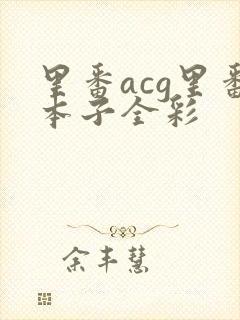 里番acg里番
本子全彩
余丰慧